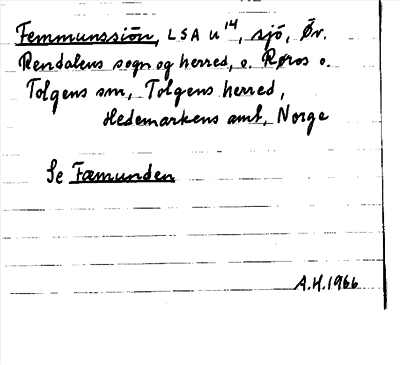 Femmunssiön, LSA U¹⁴, sjö, Öv.
Rendalens sogn og herred, o. Røros o.
Tolgens sm, Tolgens herred,
Hedemarkens amt, Norge
Se Fæmunden
A.H.1966